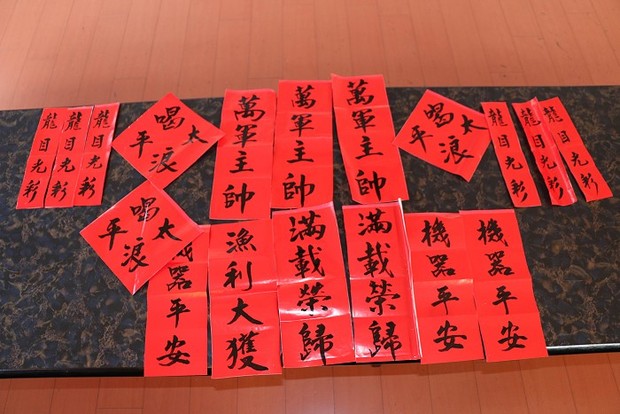 龍目光彩
龍目光彩
龍目光彩
喝浪太平
萬軍主帥
萬軍主帥
萬軍主帥
喝浪太平
龍目光彩
龍目光彩
龍目光彩
喝浪太平
機器平安
漁利大獲
滿載榮歸
滿載榮歸
機器平安
機器平安